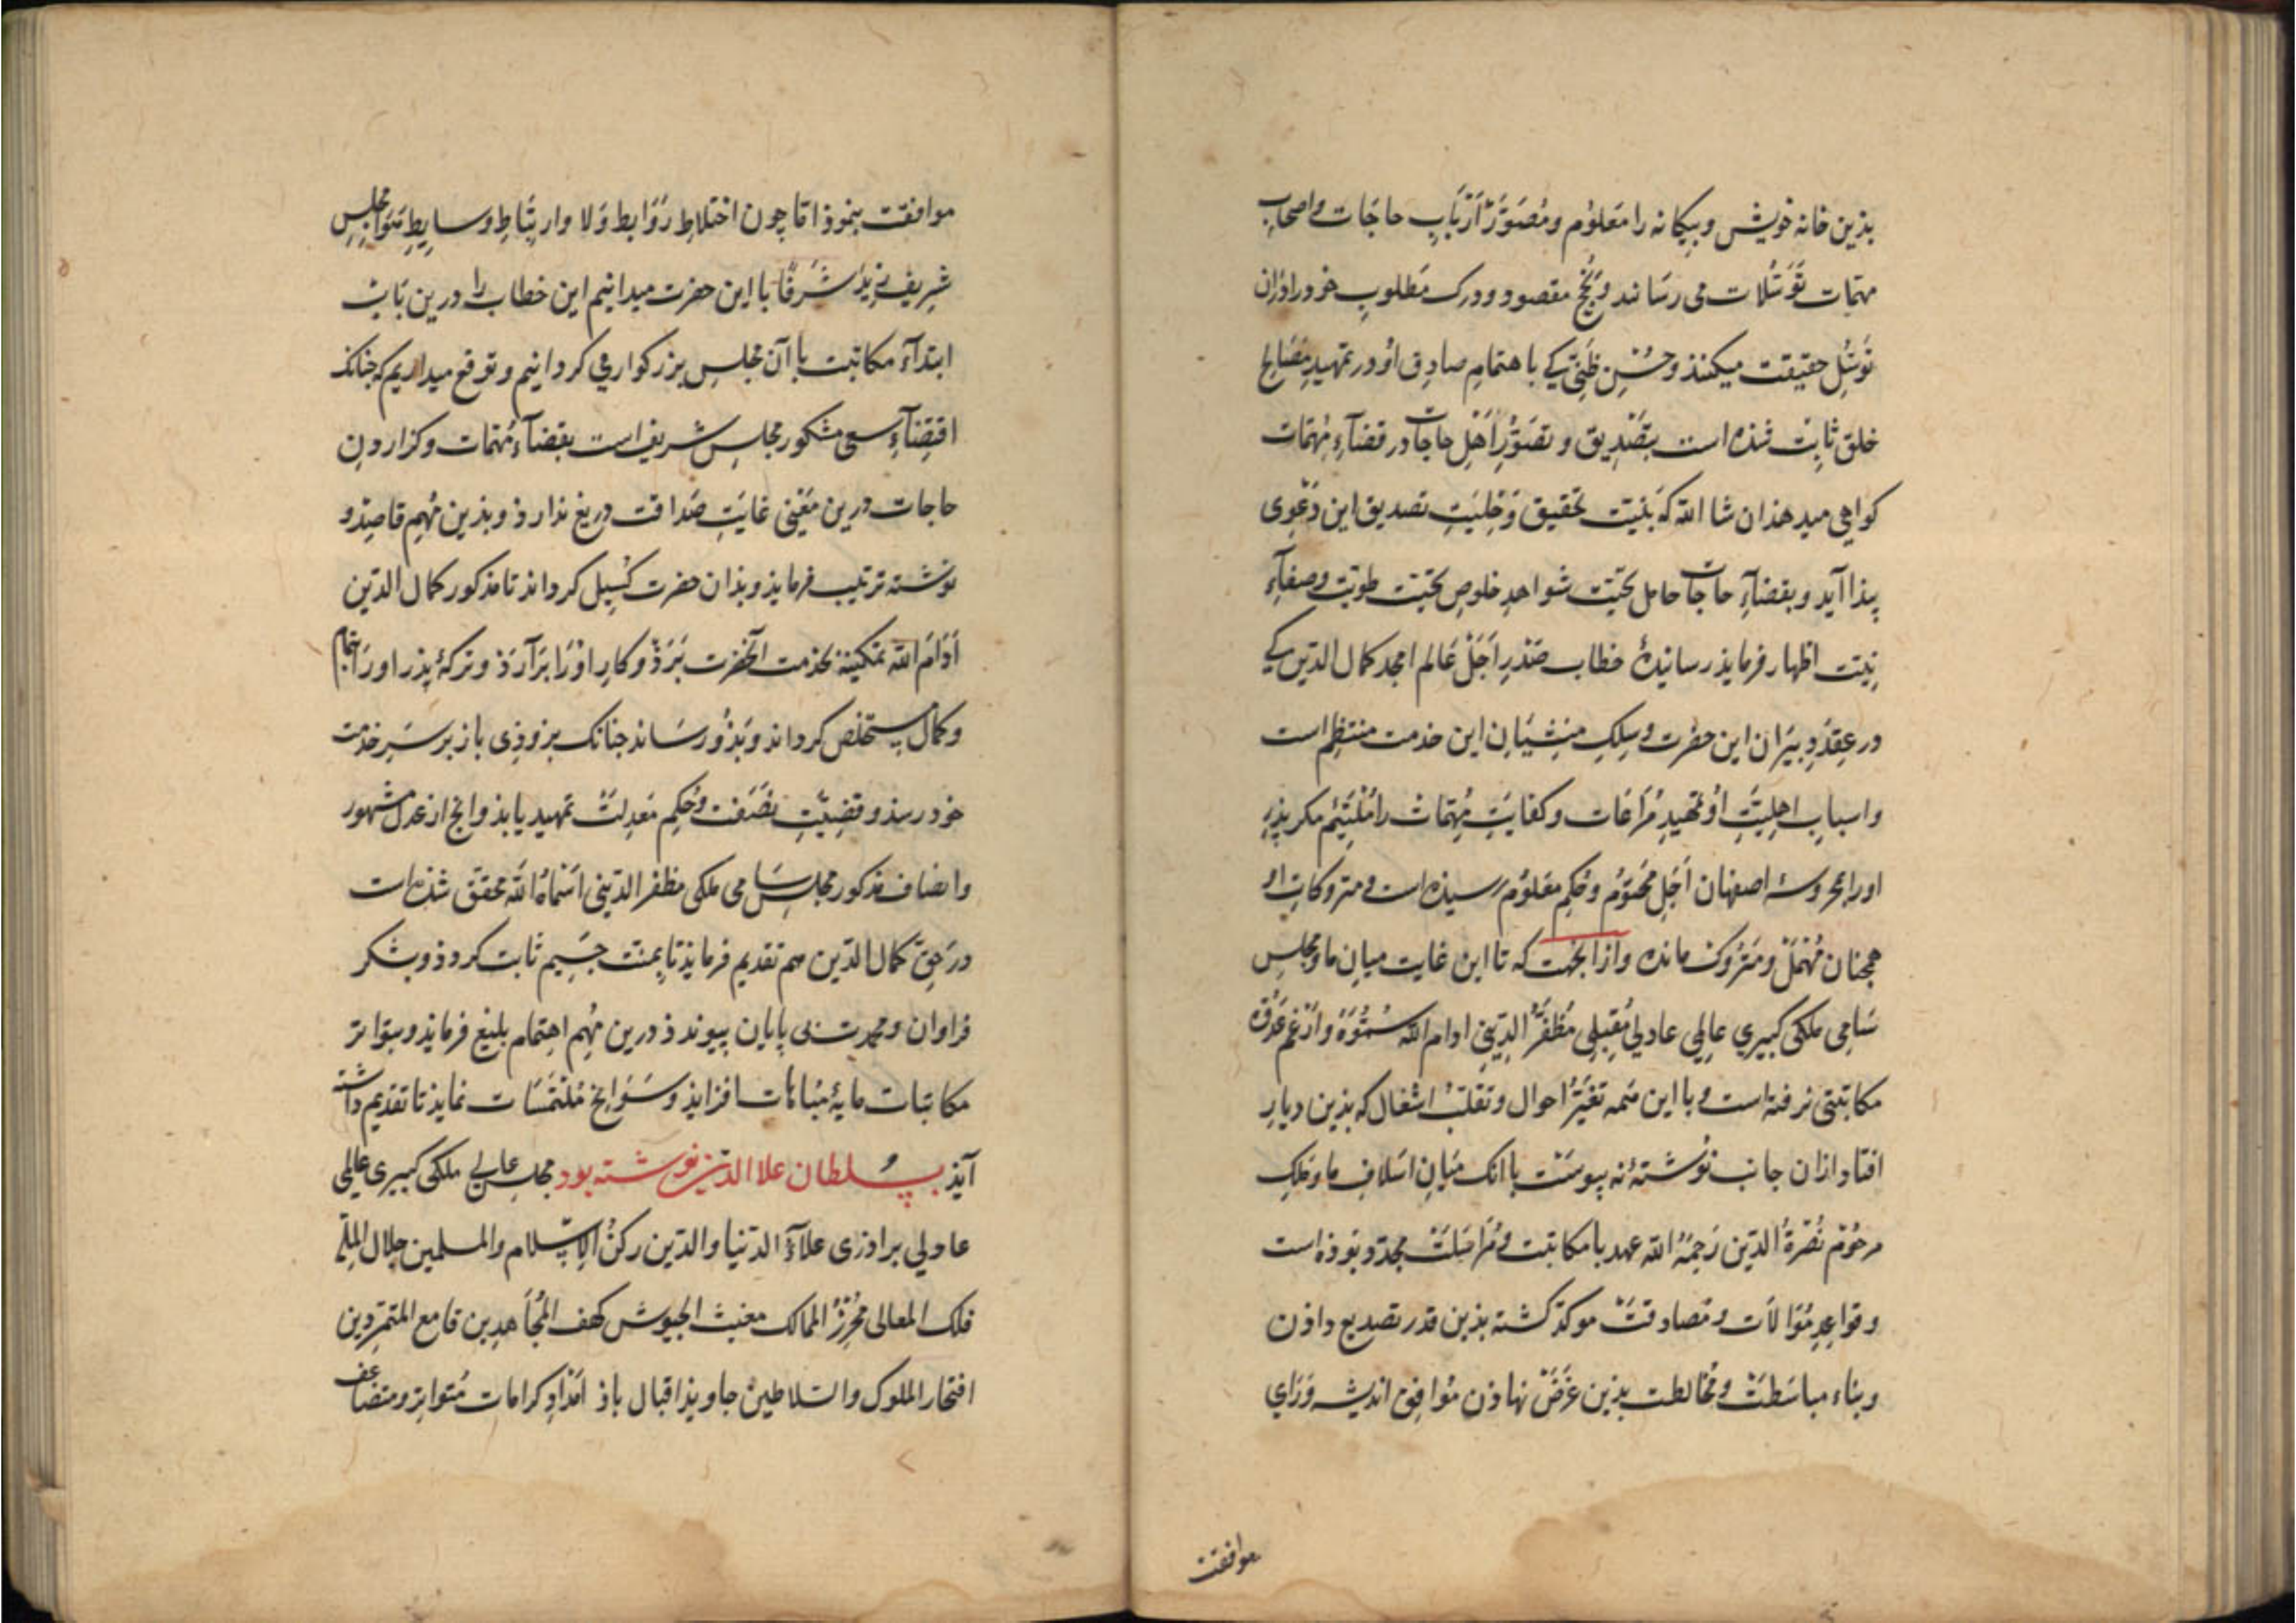 بذین خانه خویش و بیکانه را معلوم و مصور ارباب حاجات و اصحاب
مهمات توسلات می رسانند و نجح مقصود و درک مطلوب خود را وزان
توسل حقیقت میکنند و حسن ظنی کی باهتمام صادق او در تمهید مصالح
خلق ثابت شذه است بتصدیق و تصور اهل حاجات در قضآء مهمات
کواهی میدهذ ان شا الله که بنیت تحقیق و تصدیق این دعوی
پیذا آید و بقضآء حاجات حامل تحیت شواهد خلوص طویت و صفآء
نیت اظهار فرمایذ رسانیدهٔ خطاب صدر اجل عالم امجد کمال الدین کی
در عقد دبیران این حضرت و سلک منشیان این خدمت منتظم است
و اسباب اهلیت او تمهید مراعات و کفایت مهمات را ملتئم مکر پذر
اورا بمحروسهٔ اصفهان اجل محتوم و حکم معلوم رسیذه است و متروکات او
همجنان مهمل و متروک مانده و ازانجهت که تا این غایت میان ما و مجلس
سامی ملکی کبیری عالمی عادلی مقبلی مظفر الدینی ادام الله سموه و ارغم عدوه
مکاتبتی نرفته است و با این همه تغیر احوال و تقلب اشغال که بذین دیار
افتاد ازان جانب نوشتهٔ نه پیوست با انک میان اسلاف ما و ملک
مرحوم نصرة الدین رحمه الله عهد با مکاتبت و مراسلت مجدد بوذه است
و قواعد موالات و مصادقت موکد کشته بذین قدر تصدیع داذن
و بناء مباسطت و مخالطت بذین غرض نهاذن موافق اندیشه و رای
موافقت
موافقت ننموذ اما چون اختلاط روابط ولا و ارتباط وسایط هوا مجلس
شریف زید شرفا با این حضرت میدانیم این خطاب را درین باب
ابتدآء مکاتبت با آن مجلس بزرکوار می کردانیم و توقع میداریم که جنانک
اقتضآء سعی مشکور مجلس شریف است بقضآء مهمات و کزاردن
حاجات درین معنی غایت صداقت دریغ نذارذ و بذین مهم قاصد و
نوشته ترتیب فرمایذ و بذان حضرت کسیل کرداند تا مذکور کمال الدین
ادام الله تمکینه بخدمت آنحضرت برذ و کار او را برآرذ و ترکهٔ پذر او را بتمام
و کمال مستخلص کرداند و بذو رساند جنانک بزوذی باز بر سر خدمت
خود رسذ و قضیت نصفت و حکم معدلت تمهید یابذ و انج از عدل مشهور
و انصاف مذکور مجلس سامی ملکی مظفر الدینی اسماه الله محقق شذه است
در حق کمال الدین هم تقدیم فرمایذ تا بمنت جسیم ثابت کردذ و بشکر
فراوان و محمدت بی پایان پیوندذ درین مهم اهتمام بلیغ فرمایذ و بتواتر
مکاتبات مایهٔ مباهات افزایذ و سوانح ملتمسات نمایذ تا تقدیم داشته
آیذ بسلطان علا الدین نوشته بود مجلس عالی ملکی کبیری عالمی
عادلی براذری علآء الدنیا والدین رکن الاسلام والمسلمین جلال الملة
فلک المعالی محرز الممالک مغیث الجیوش کهف المجاهدین قامع المتمردین
افتخار الملوک والسلاطین جاویذ اقبال باذ امداد کرامات متواتر و متضاعف